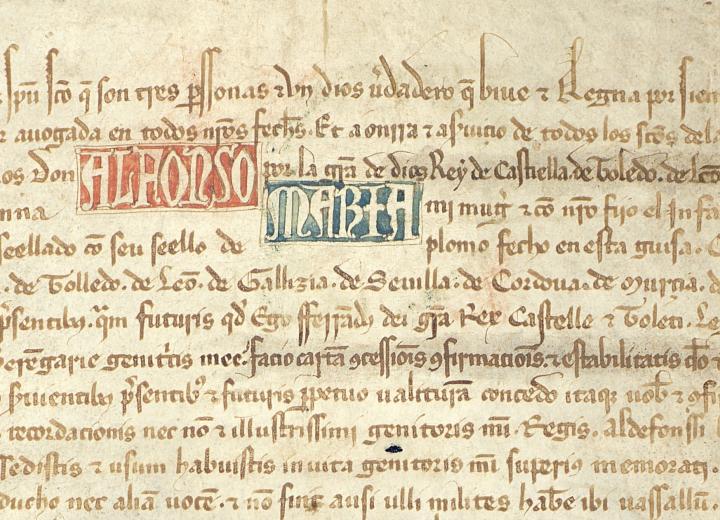 spũ sc̃o q̃ son tres ꝑssonas ⁊ vn dios v̉dadero q̃ biue ⁊ Regna por sien
auogada en todos nr̃os fech̃s. Et a onrra ⁊ a suicio de todos los sc̃os del
nos Don ALFONSO por la gr̃a de dios Rey de Castiella. de Toledo. de leõ
MARIA mi mug̃ ⁊ cõ nr̃o fijo el Infa
seellado cõ seu seello de plomo fecho en esta guisa.
. de Tolledo. de Leõ. de Gallizia. de Seuilla. de Cordoua. de Murçia. d
p̃sentibꝰ. quam futuris qd̃ Ego fferrãdꝰ dei gr̃a Rex Castelle ⁊ Toleti. Le
berẽgarie genitr̃cis mee. facio cartã ꝯcessiõis ꝯfirmatiõis. ⁊ estabilitatis
viuentibꝰ p̃sentibꝰ ⁊ futuris ꝑpetuo ualiturã concedo itaque uob̃ ⁊ ꝯfi
recordacionis nec nõ ⁊ illustrissimi genitoris mĩ. Regis. aldefonssi
sedistis ⁊ usum habuistis in uita genitoris mĩ superiꝰ memorati.
ducho nec aliã uocẽ. ⁊ nõ sint ausi ulli milites hab̃e ibi uassallũ.